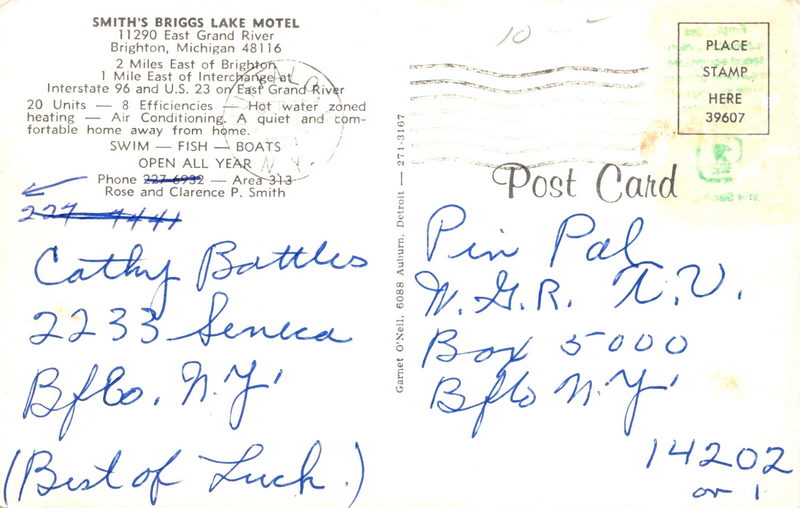 SMITH'S BRIGGS LAKE MOTEL
11290 East Grand River
Brighton, Michigan 48116
2 Miles East of Brighton
1 Mile East of Interchange at
Interstate 96 and U.S. 23 on East Grand River
20 Units — 8 Efficiencies — Hot water zoned
heating — Air Conditioning. A quiet and com-
fortable home away from home.
SWIM — FISH — BOATS
OPEN ALL YEAR
Phone 227-6932 — Area 313
Rose and Clarence P. Smith
227 4441
Cathy Battles
2233 Seneca
Bflo. N.Y.
(Best of Luck.)
Garnet O'Neil, 6088 Auburn, Detroit — 271-3167
10
PLACE
STAMP
HERE
39607
Post Card
Pin Pal
W.G.R. T.V.
Box 5000
Bflo N.Y.
14202
or 1
N.Y.